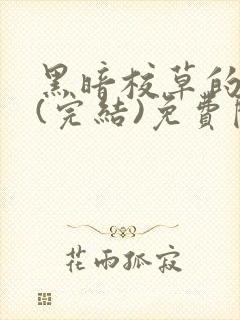 黑暗校草的
(完結)免費
花雨孤寂